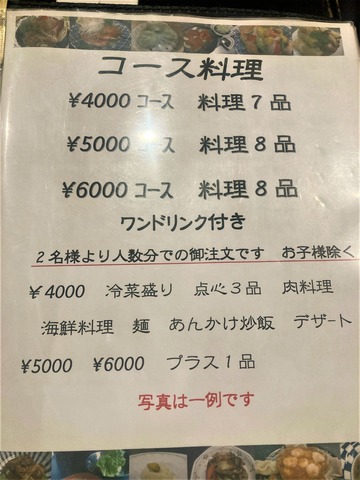 コース料理
¥4000 コース 料理7品
¥5000 コース 料理8品
¥6000 コース 料理8品
ワンドリンク付き
2名様より人数分での御注文です お子様除く
¥4000 冷菜盛り 点心3品 肉料理
海鮮料理 麺 あんかけ炒飯 デザート
¥5000 ¥6000 プラス1品
写真は一例です